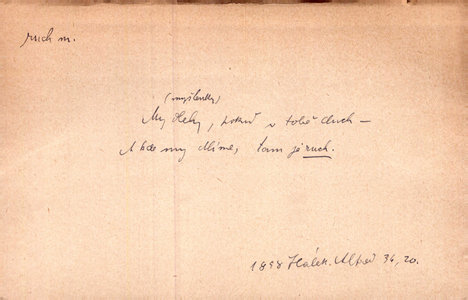 ruch m.
(myšlenky)
My , pokud v tobě duch –
A kde my dlíme, tam je ruch.
1858 Hálek. Alfred 34, 20.